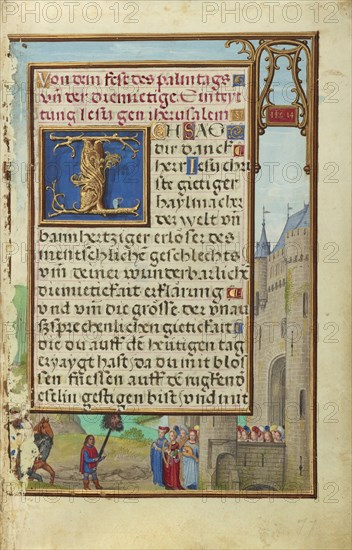 Von dem fest des palmtags
vn̄ der diemietige Einteyt
tung Iesu gen iherusalem
ICH SAG
dir danck
herr Iesu chri
ste gietiger
haylmacher
der welt vn̄
barmhertziger erloser des
menschliche geschlechts
vm̄ deiner wunderbarliche
diemietickait erklarung
vnd vm̄ die grosse. der vnau
szsprechenlichen gietickait
die du auff dē heutigen tag
erzaygt hast da du mit blos
sen fuessen auff dē rugken
eselin gestigen bist vnd mit